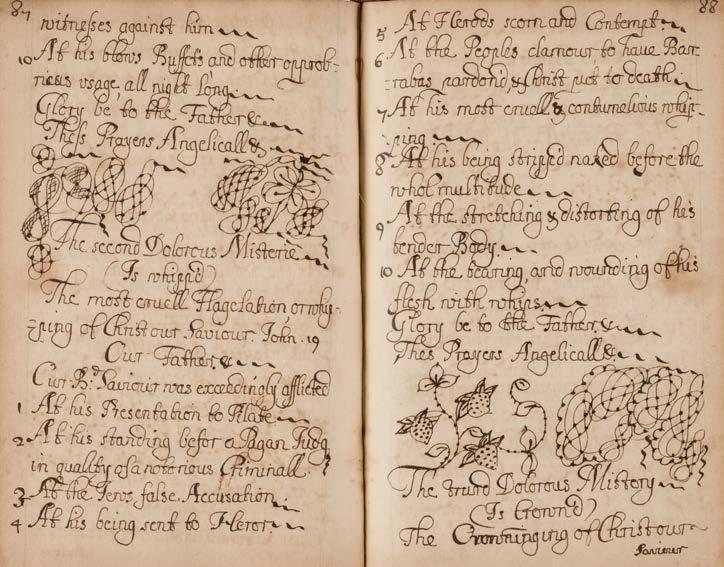 87
witnesses against him
10 At his blows Buffets and other opprob-
rious usage, all night long
Glory be to the Father &c
Thess Prayers Angelicall &
The second Dolorous Misterie
(Is whipp'd)
The most cruell Flagelation, or whip-
ping of Christ our Saviour. John. 19
Our Father, &
Our Bd Saviour was exceedingly afflicted
1 At his Presentation to Pilate
2 At his standing befor a Pagan Judg
in quallity of a notorious Criminall
3 At the Jews, false, Accusation
4 At his being sent to Heror
88
5 At Herods scorn and Contempt
6 At the Peoples clamour to have Bar-
rabas pardon'd & Christ put to death
7 At his most cruell & contumelious whip-
ping
8 At his being stripped naked before the
whol multitude
9 At the stretching & distorting of his
tender Body
10 At the bearing, and wounding of his
flesh with whips
Glory be to the Father, &
Thes Prayers Angelicall &
The Dolorous Mistery
(Is Crownd)
The Crowninging of Christ our
Saviour